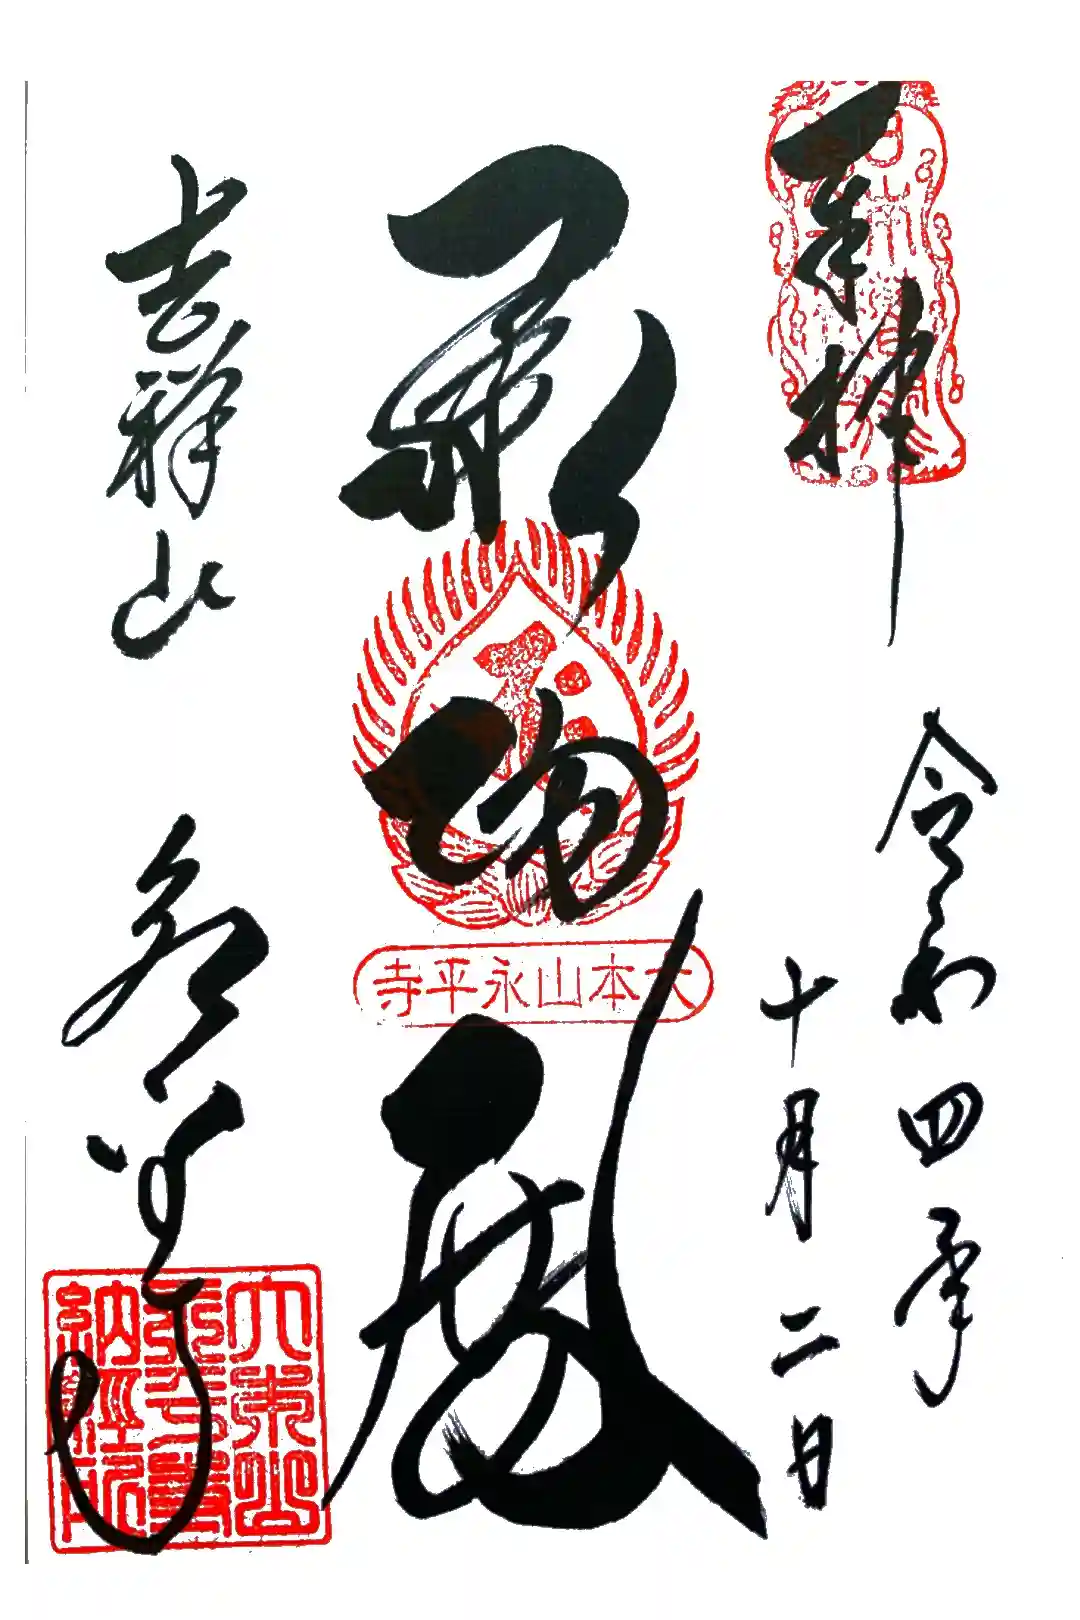 奉拝
令和四年
十月二日
承陽殿
大本山永平寺
吉祥山
永平寺
大本山永平寺書納経印